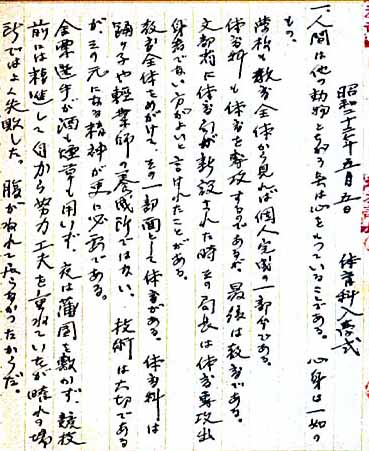 昭和二十三年五月五日 体育科入学式
一、人間は他の動物と異る点は心をもつていることである。心身は一如の
もの。
学校も教育全体から見れば個人完成の一部分である。
体育科も体育を専攻するのであるが、最後は教育である。
文部省に体育局が新設された時その局長は体育専攻出
身者でない方がよいと言はれたことがある。
教育全体をめがけて、その一部面として体育がある。体育科は
踊り子や軽業師の養成所ではない。技術は大切である
が、その元になる精神が更に必要である。
金栗選手が酒も煙草も用いず、夜は蒲団を敷かず、競技
前には精進して自から努力工夫を重ねていたが晴れの場
所ではよく失敗した。腹がねれて居らなかつたからだ。